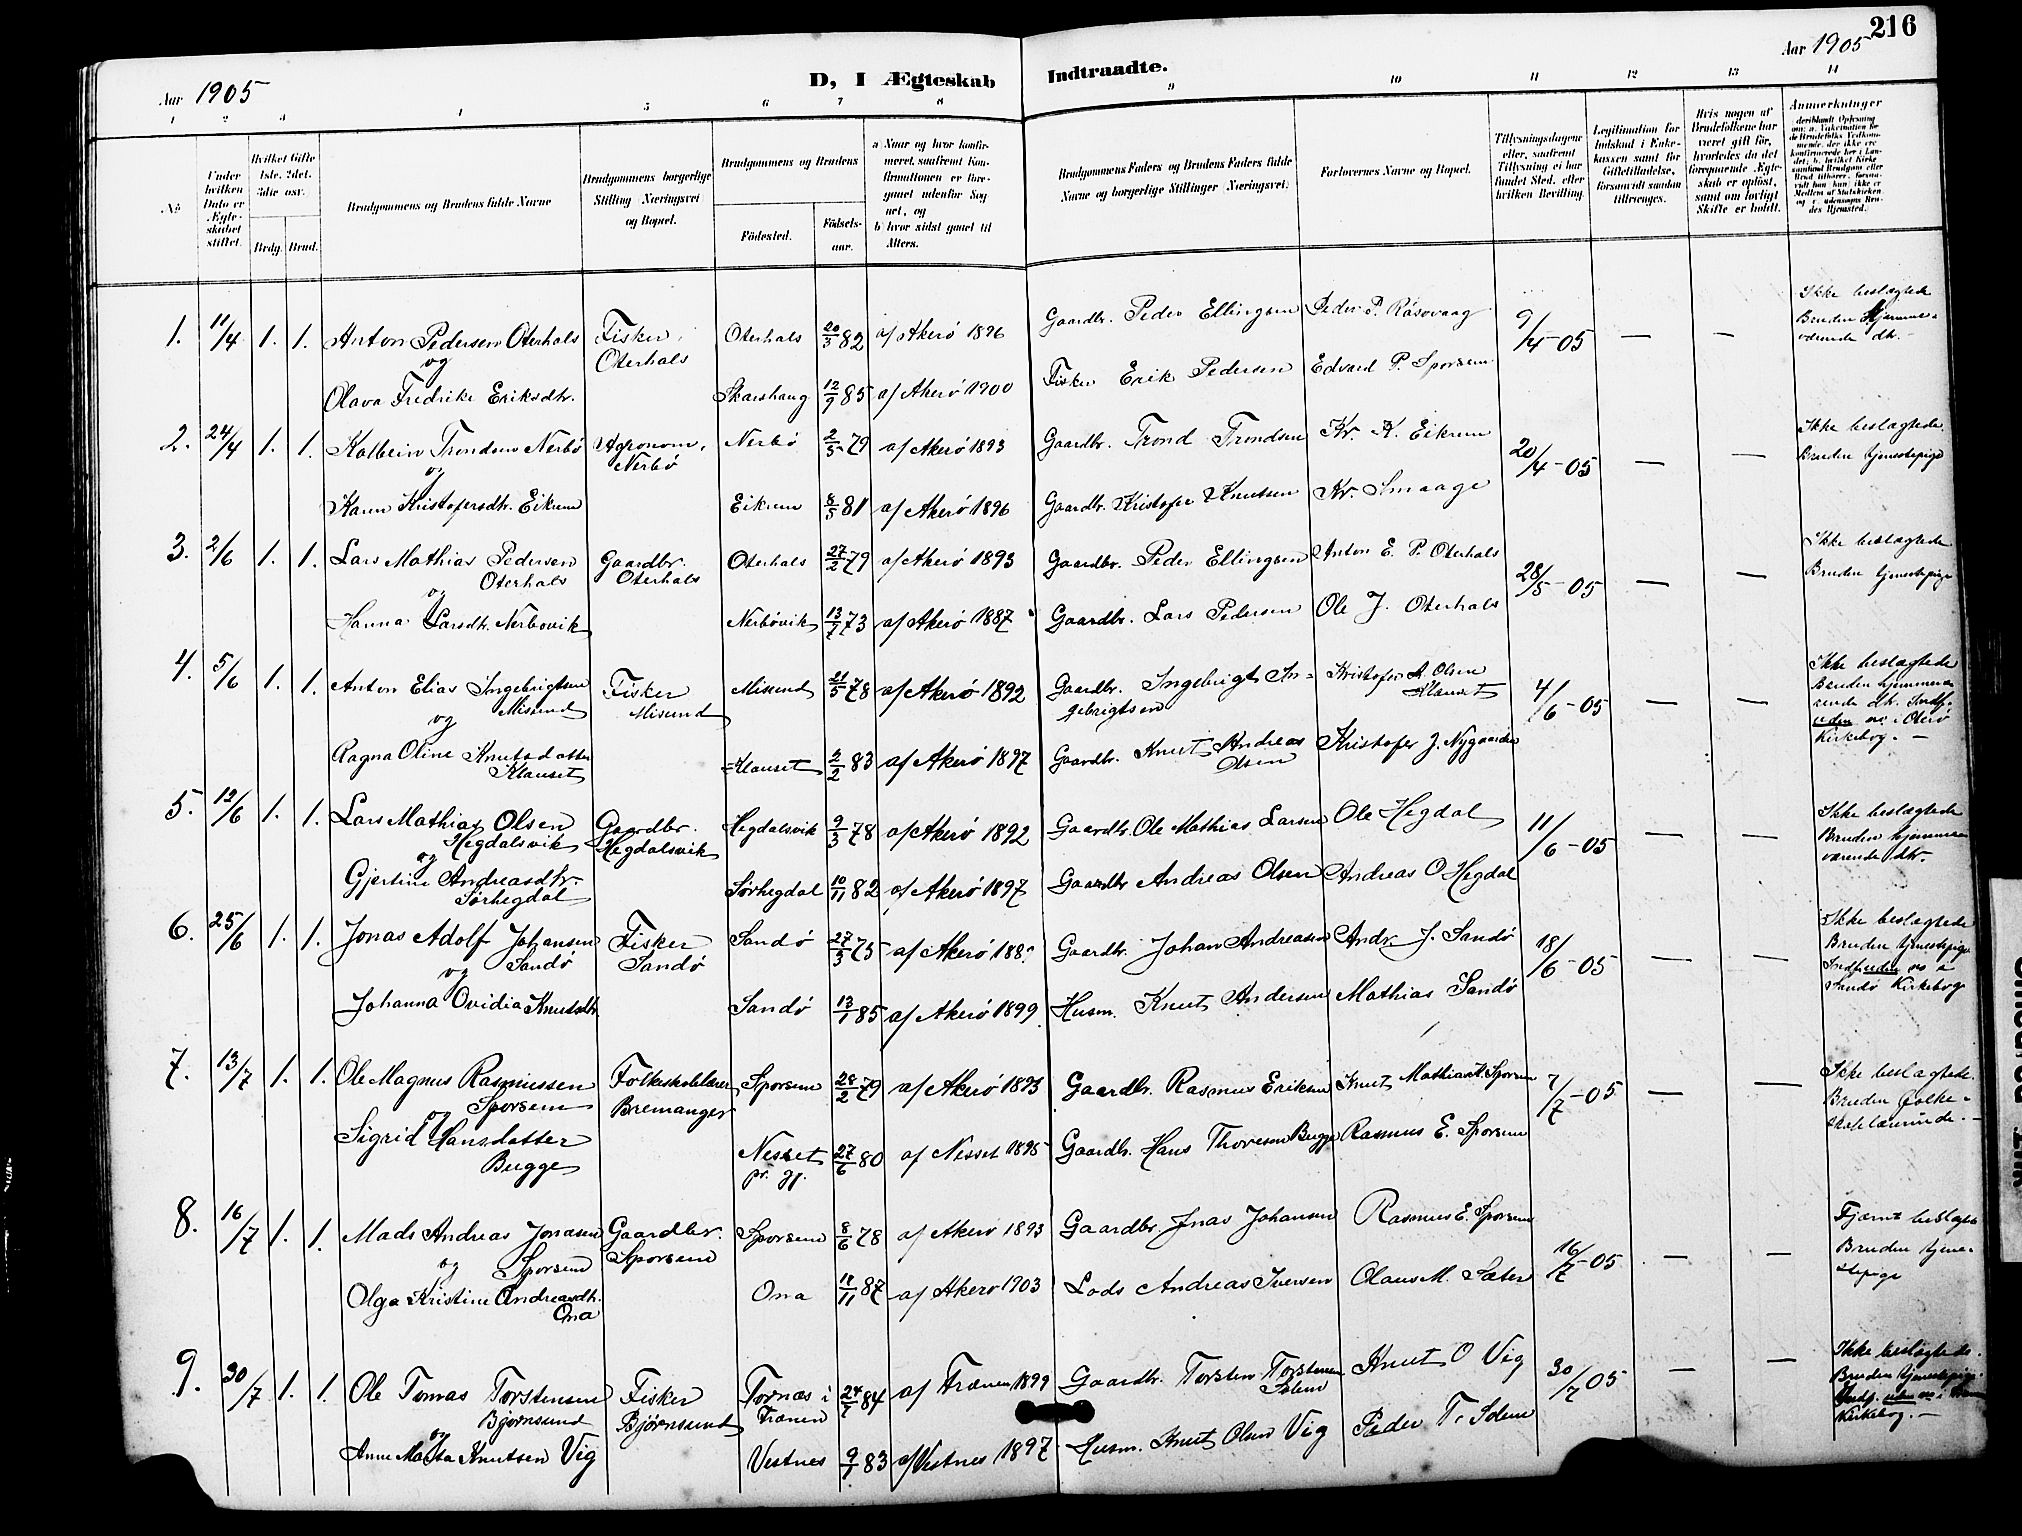 216
Aar 1905
D, I Ægteskab Indtraadte.
Aar 1905
1 2 3 4 5 6 7 8 9 10 11 12 13 14
No.
Under hvilken Dato er Ægteskabet stiftet.
Hvilket Gifte 1ste, 2det, 3die osv.
Brdg. Brud.
Brudgommens og Brudens fulde Navne
Brudgommens borgerlige Stilling (Næringsvei) og Bopæl.
Brudgommens og Brudens
Födested.
Födselsaar.
a) Naar og hvor konfirmeret, saafremt Konfirmationen er foregaaet udenfor Sognet, og
b) hvor sidst gaaet til Alters.
Brudgommens Faders og Brudens Faders fulde Navne og borgerlige Stillinger (Næringsvei).
Forlovernes Navne og Bopæl.
Tillysningsdagene eller, saafremt Tillysning ei har fundet Sted, efter hvilken Bevilling.
Legitimation for Indskud i Enkekassen samt for Giftetilladelse, forsaavidt saadan tiltrænges.
Hvis nogen af Brudefolkene har været gift för, hvorledes da det foregaaende Ægteskab er oplöst, samt om lovligt Skifte er holdt.
Anmerkninger
1. 11/4 1. 1. Anton Pedersen Oterhals Fisker, Oterhals Oterhals 20/3 82 af Akerö 1896 Gaardbr. Peder Ellingsen Peder P. Räsovaag 9/4-05 — — Ikke beslægtede
og Bruden hjemmeværende dtr.
Olava Fredrike Eriksdtr. Skarshaug 12/9 85 af Akerö 1900 Fisker Erik Pedersen Edvard P. Sporsem
2. 24/4 1. 1. Kolbein Trondsen Nerbö Agronom, Nerbö Nerbö 2/5 79 af Akerö 1893 Gaardbr. Trond Trondsen Kr. K. Eikrem 20/4-05 — — Ikke beslægtede.
og Bruden tjenestepige
Karen Kristofersdtr. Eikrem Eikrem 8/5 81 af Akerö 1896 Gaardbr. Kristofer Knutsen Kr. Smaage
3. 2/6 1. 1. Lars Mathias Pedersen Oterhals Gaardbr. Oterhals Oterhals 27/2 79 af Akerö 1893 Gaardbr. Peder Ellingsen Anton E. P. Oterhals 28/5-05 — — Ikke beslægtede
og Bruden tjenestepige
Hanna Larsdtr. Nerbövik Nerbövik 13/7 73 af Akerö 1887 Gaardbr. Lars Pedersen Ole J. Oterhals
4. 5/6 1. 1. Anton Elias Ingebrigtsen Misund Fisker Misund Misund 21/5 78 af Akerö 1892 Gaardbr. Ingebrigt Ingebrigtsen Kristofer A. Olsen Klauset 4/6-05 — — Ikke beslægtede
og Bruden hjemmeværende dtr.
Kirkebog. —
Ragna Oline Knutsdatter Klauset Klauset 2/2 83 af Akerö 1897 Gaardbr. Knut Andreas Olsen Kristofer J. Nygaarden
5. 12/6 1. 1. Lars Mathias Olsen Hegdalsvik Gaardbr. Hegdalsvik Hegdalsvik 9/3 78 af Akerö 1892 Gaardbr. Ole Mathias Larsen Ole Hegdal 11/6-05 — — Ikke beslægtede
og Bruden hjemmeværende dtr.
Gjertine Andreasdtr. Sörhegdal Sörhegdal 10/11 82 af Akerö 1897 Gaardbr Andreas Olsen Andreas O Hegdal
6. 25/6 1. 1. Jonas Adolf Johansen Sandö Fisker Sandö Sandö 27/3 75 af Akerö Gaardbr. Johan Andreasen Andr. J. Sandö 18/6-05 — — Ikke beslægtede
og Bruden tjenestepige
Sandö Kirkebog
Johanna Ovidia Knutsdtr. Sandö 13/1 85 af Akerö 1899. Husm. Knut Andersen Mathias Sandö
7. 13/7 1. 1. Ole Magnus Rasmussen Sporsem Folkeskolelærer Bremanger Sporsem 28/2 79 af Akerö 1893 Gaardbr. Rasmus Eriksen Knut Mathias K. Sporsem 7/7-05 — — Ikke beslægtede.
og Bruden folkeskolelærerinde. —
Sigrid Hansdatter Bugge Nesset pr. gj. 27/6 80 af Nesset 1895 Gaardbr. Hans Thoresen Bugge Rasmus E. Sporsem
8. 16/7 1. 1. Mads Andreas Jonasen Sporsem Gaardbr. Sporsem Sporsem 8/6 78 af Akerö 1893 Gaardbr. Jnas Johansen Rasmus E. Sporsem 16/7-05 — — Fjernt beslægtede
og Bruden tjenestepige
Olga Kristine Andreasdtr. Ona Ona 11/11 87 af Akerö 1903 Lods Andreas Iversen Olaus M. Sæter
9. 30/7 1. 1. Ole Tomas Torstensen Björnsund Fisker Björnsund Tornæs i Frænen 24/7 84 af Frænen 1899 Gaardbr. Torsten Torstensen Knut O Vig 30/7 05 — — Ikke beslægtede.
og Bruden tjenestepige.
Kirkebog. —
Anne Marta Knutsen Vig Vestnes 9/1 83 af Vestnes 1897 Husm. Knut Olsen Vig Peder T.